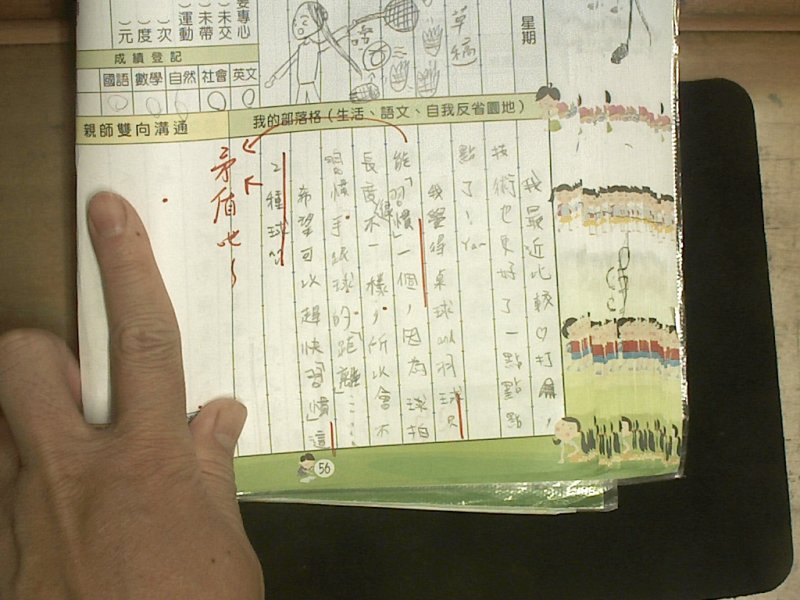 星期
草稿
要專心
（　）未交
（　）未帶
（　）運動
次
度
元
成績登記
國語 數學 自然 社會 英文
我的部落格（生活、語文、自我反省園地）
親師雙向溝通
我最近比較♡打桌，
技術也更好了一點點點
點了！Yan
我覺得桌球以羽球只
能「習慣」一個，因為球拍
長度不一樣，所以會不
習慣手跟球的「距離」……
希望可以趕快「習慣」這
2種球
矛盾也～
56